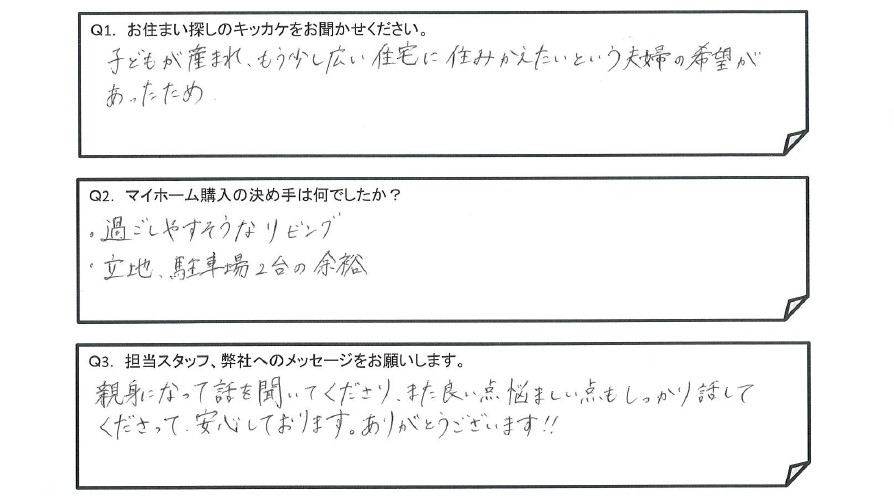 Q1. お住まい探しのキッカケをお聞かせください。
子どもが産まれ、もう少し広い住宅に住みかえたいという夫婦の希望が
あったため
Q2. マイホーム購入の決め手は何でしたか？
・過ごしやすそうなリビング
・立地、駐車場2台の余裕
Q3. 担当スタッフ、弊社へのメッセージをお願いします。
親身になって話を聞いてくださり、また良い点悩ましい点もしっかり話して
くださって、安心しております。ありがとうございます!!